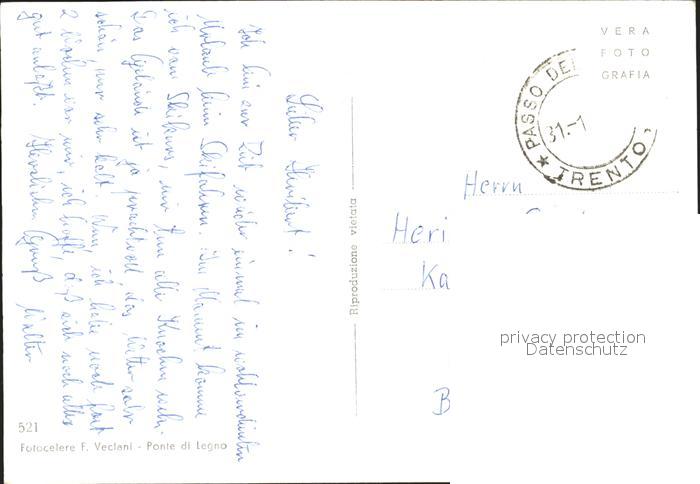 Lieber Heribert!
Ich bin zur Zeit wieder einmal im wohlverdienten
Urlaub beim Skifahren. Im Moment komme
ich vom Skikurs, mir tun alle Knochen weh.
Das Gelände ist ja prachtvoll das Wetter sehr
schön, nur sehr kalt. Nun, ich habe noch fast
2 Wochen vor mir, ich hoffe, daß sich noch alles
gut anläßt. Herzlichen Gruß Walter
521
Fotocelere F. Veclani - Ponte di Legno
Riproduzione vietata
VERA
FOTO
GRAFIA
PASSO DEL
31.-1
★ TRENTO
Herrn
Heri
Ka
B
privacy protection
Datenschutz